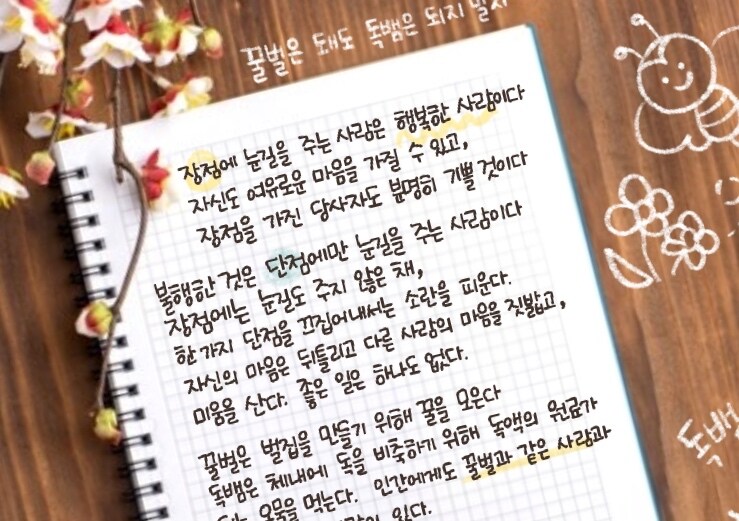 꿀벌은 돼도 독뱀은 되지 말자
장점에 눈길을 주는 사람은 행복한 사람이다
자신도 여유로운 마음을 가질 수 있고,
장점을 가진 당사자도 분명히 기쁠 것이다
불행한 것은 단점에만 눈길을 주는 사람이다
장점에는 눈길도 주지 않은 채,
한 가지 단점을 끄집어내서는 소란을 피운다.
자신의 마음은 뒤틀리고 다른 사람의 마음을 짓밟고,
미움을 산다. 좋은 일은 하나도 없다.
꿀벌은 벌집을 만들기 위해 꿀을 모은다
독뱀은 체내에 독을 비축하기 위해 독액의 원료가
되는 오물을 먹는다. 인간에게도 꿀벌과 같은 사람과
있다.
독뱀